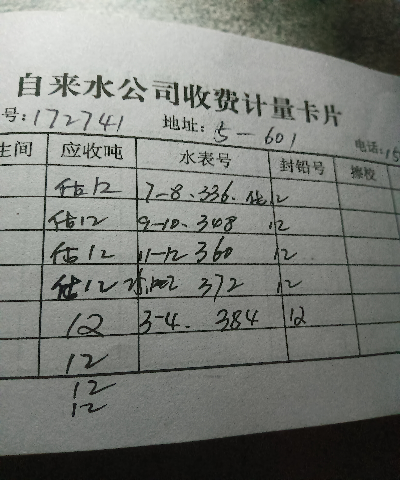 自来水公司收费计量卡片
号: 172741 地址: 5-601 电话: 15
生间 应收吨 水表号 封铅号 擦校
估12 7-8. 336. 估12
估12 9-10. 348 12
估12 11-12 360 12
估12 372 12
12 3-4. 384 12
12
12
12